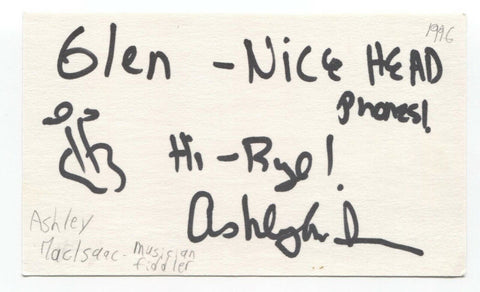 1996
Glen - Nice HEAD
Phones!
Hi - Rye!
Ashley
Ashley
MacIsaac - musician
fiddler